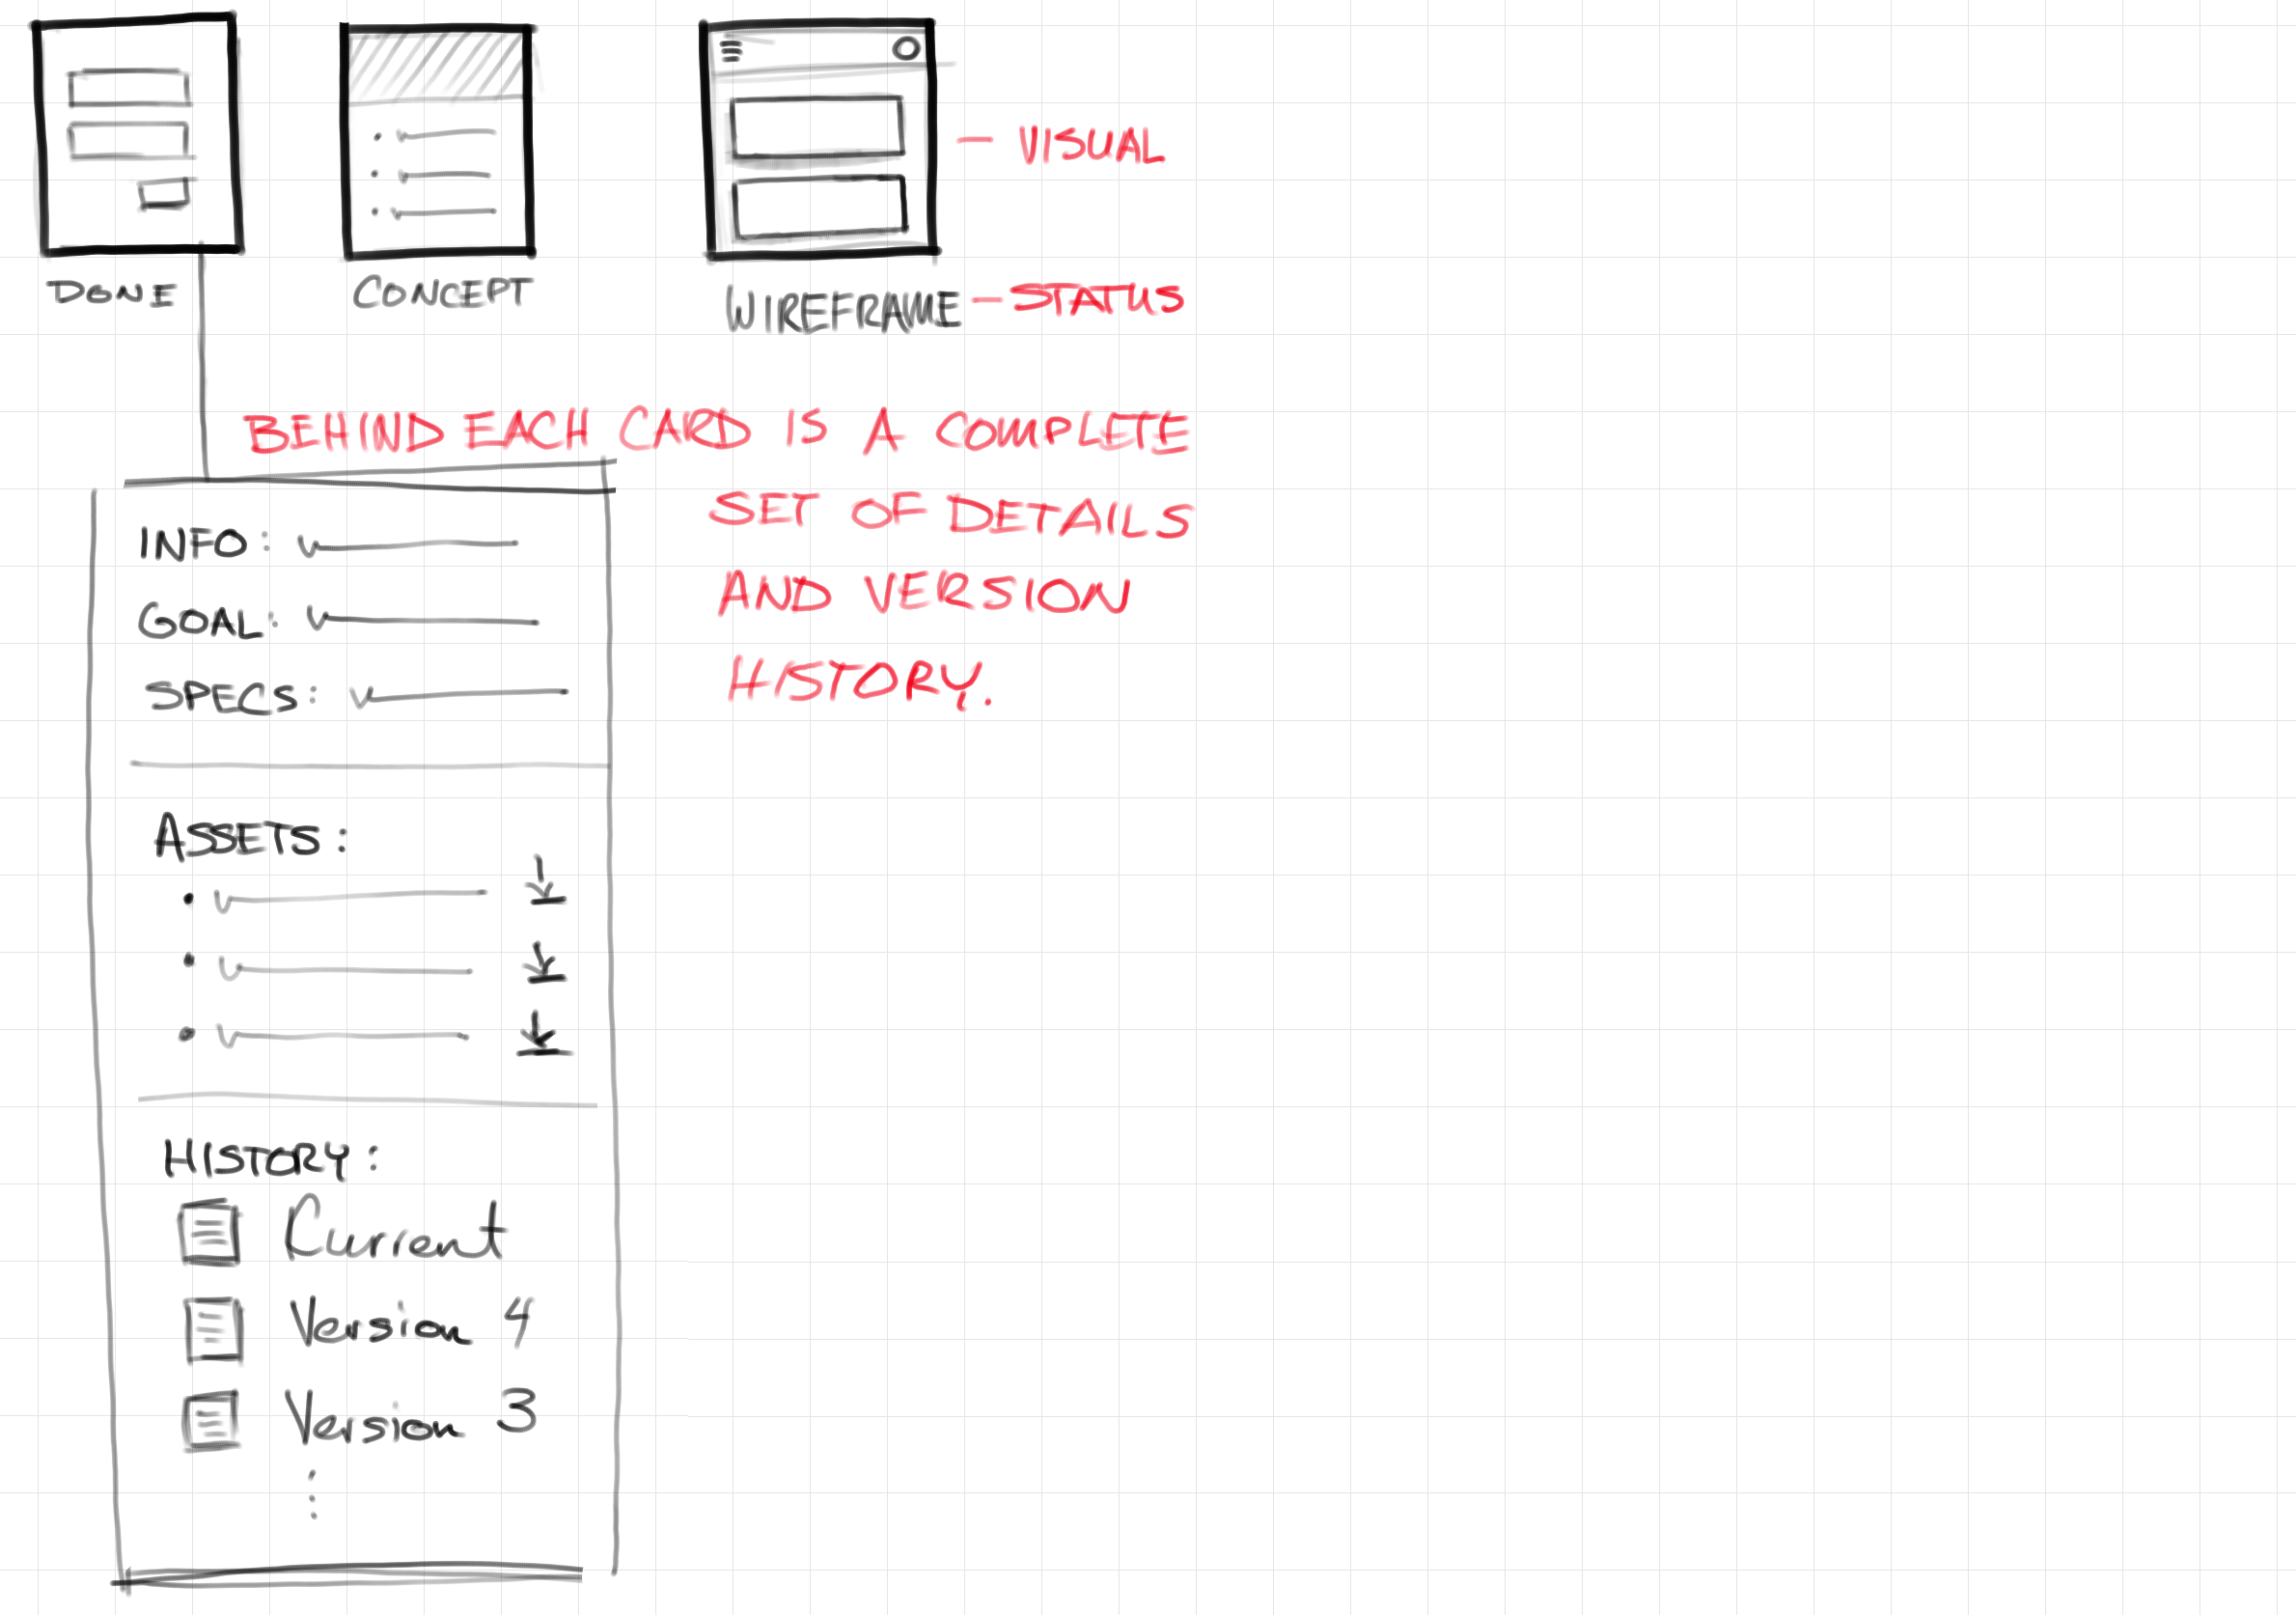 — VISUAL
DONE
CONCEPT
WIREFRAME — STATUS
BEHIND EACH CARD IS A COMPLETE
SET OF DETAILS
AND VERSION
HISTORY.
INFO:
GOAL:
SPECS:
ASSETS:
HISTORY:
Current
Version 4
Version 3